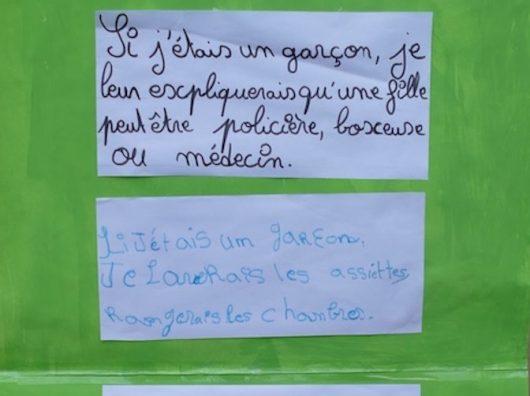 Si j'étais un garçon, je
leur escpliquerais qu'une fille
peut être policière, boxeuse
ou médecin.
Si J'étais um garçon,
Je Laverais les assiettes,
Rangerais les chambres.